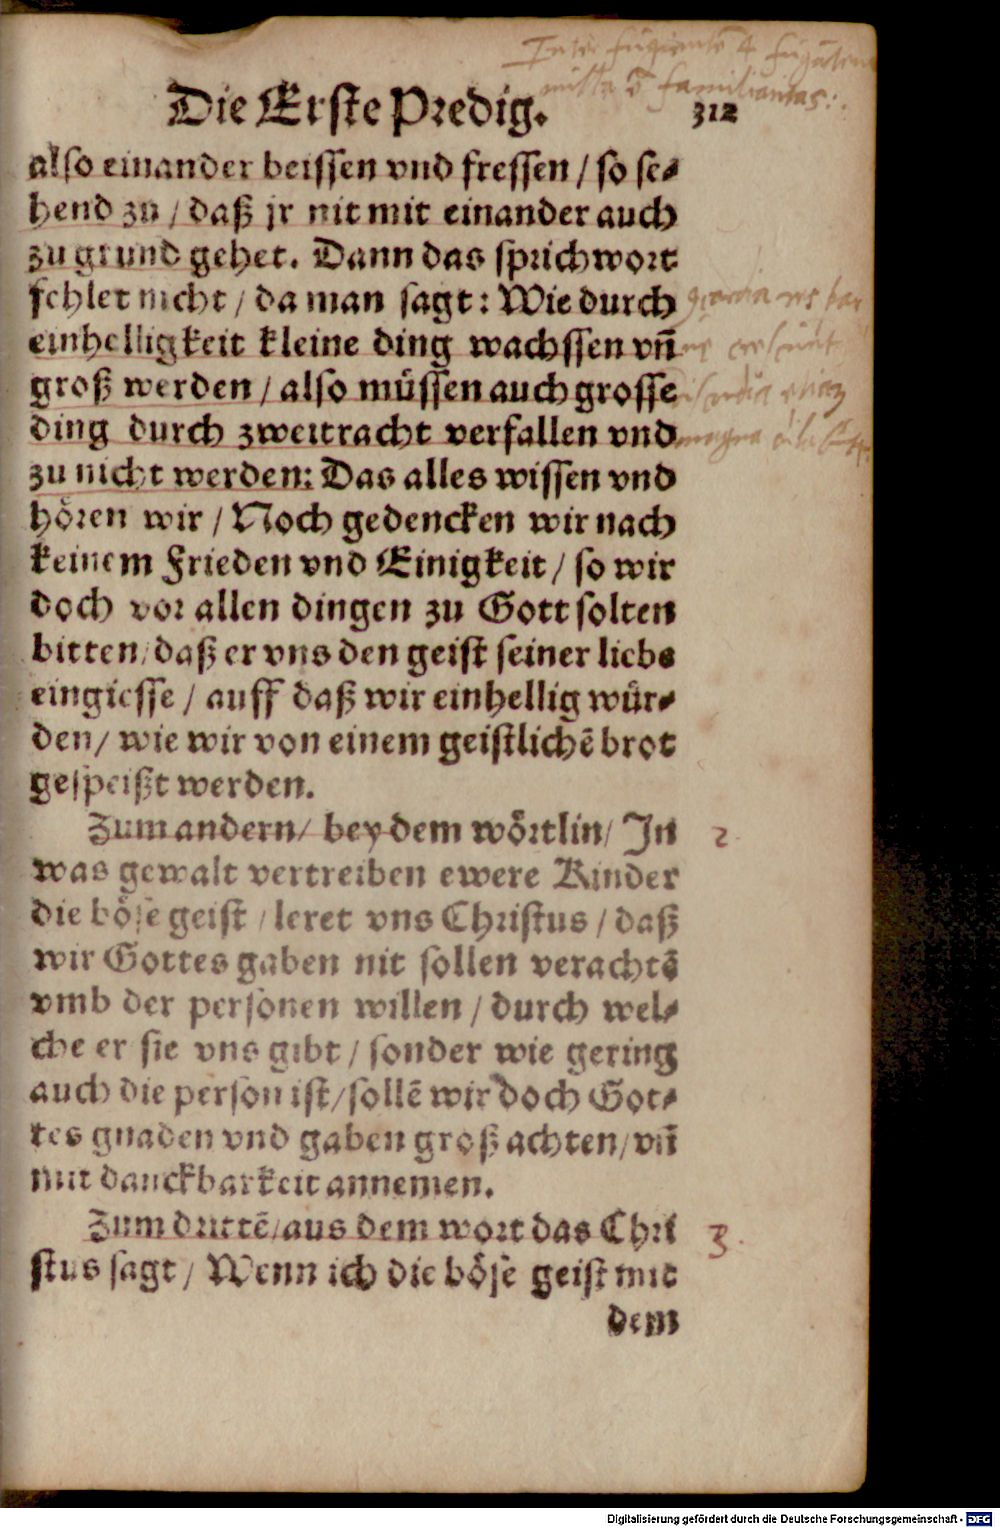 Die Erste Predig. 312
also einander beissen vnd fressen / so se⸗
hend zu / daß jr nit mit einander auch
zu grund gehet. Dann das sprichwort
fehlet nicht / da man sagt: Wie durch
einhelligkeit kleine ding wachssen vn̄
groß werden / also müssen auch grosse
ding durch zweitracht verfallen vnd
zu nicht werden: Das alles wissen vnd
hören wir / Noch gedencken wir nach
keinem Frieden vnd Einigkeit / so wir
doch vor allen dingen zu Gott solten
bitten / daß er vns den geist seiner liebe
eingiesse / auff daß wir einhellig wür⸗
den / wie wir von einem geistlichē brot
gespeißt werden.
Zum andern / bey dem wörtlin / In
was gewalt vertreiben ewere Kinder
die böse geist / leret vns Christus / daß
wir Gottes gaben nit sollen verachtē
vmb der personen willen / durch wel⸗
che er sie vns gibt / sonder wie gering
auch die person ist / sollē wir doch Got⸗
tes gnaden vnd gaben groß achten / vn̄
mit danckbarkeit annemen.
Zum drittē / aus dem wort das Chri
stus sagt / Wenn ich die böse geist mit
dem
2
3
Digitalisierung gefördert durch die Deutsche Forschungsgemeinschaft - DFG